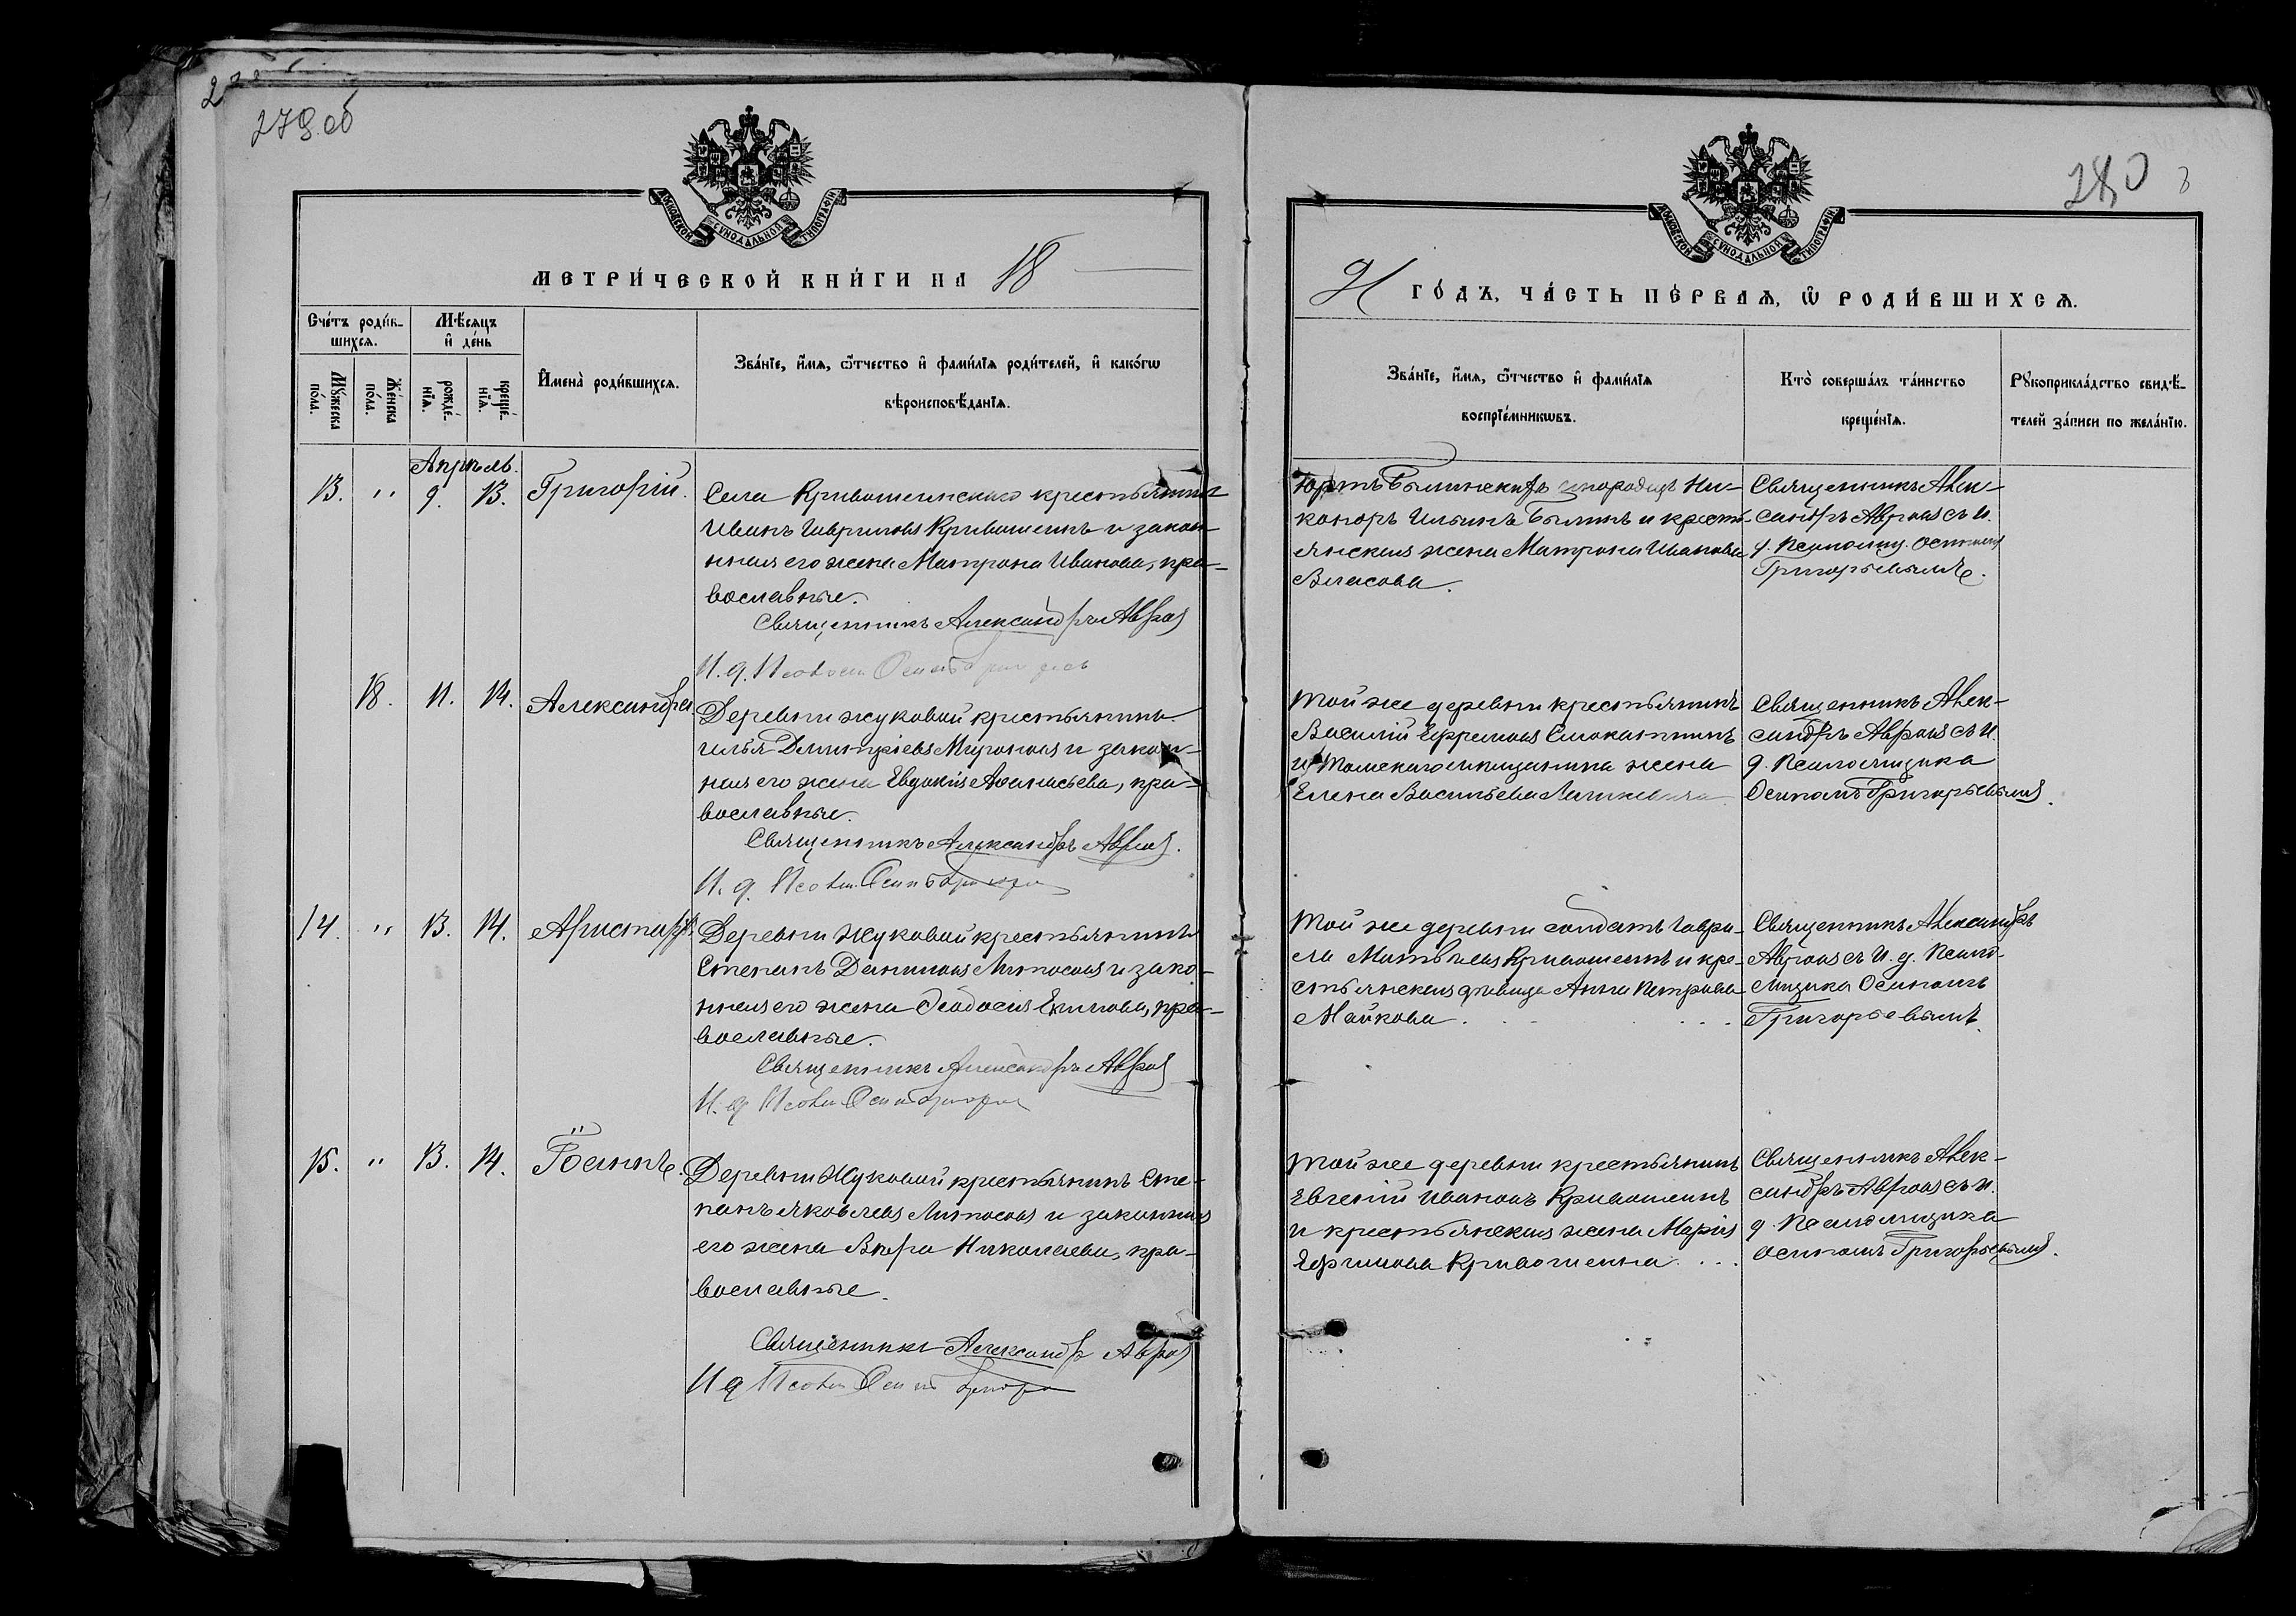 279 об
МОСКОВСКОЙ СѴНОДАЛЬНОЙ ТИПОГРАФІИ
МЕТРИ́ЧЕСКОЙ КНИ́ГИ НА 18
Сче́тъ роди́в-
шихся.
Мѣ́сяцъ
и҆ де́нь
Мꙋ́жеска
по́ла.
Же́нска
по́ла.
рожде́-
нїѧ.
креще́-
нїѧ.
И҆мена̀ роди́вшихсѧ.
Зва́нїе, и҆́мѧ, ѻ҆́тчество и҆ фами́лїѧ роди́телей, и҆ како́гѡ
вѣроисповѣ́данїѧ.
Апрѣль.
13. " 9. 13. Григорій.
Села Кривошеинскаго крестьянинъ
Иванъ Гавриловъ Кривошеинъ и закон-
нная его жена Матрона Иванова, пра-
вославные.
Священникъ Александръ Авровъ
И. д. Псалом. Осипъ Григорьевъ
18. 11. 14. Александра.
Деревни Жуковой крестьянинъ
Илья Димитріевъ Мироновъ и закон-
ная его жена Евдокія Аѳанасьева, пра-
вославные.
Священникъ Александръ Авровъ.
И. д. Псалом. Осипъ Григорьевъ
14. " 13. 14. Аристархъ.
Деревни Жуковой крестьянинъ
Степанъ Даниловъ Литосовъ и зако-
нная его жена Ѳеодосія Екимова, пра-
вославные.
Священникъ Александръ Авровъ
И. д. Псалом. Осипъ Григорьевъ
15. " 13. 14. Іоаннъ.
Деревни Жуковой крестьянинъ Сте-
панъ Яковлевъ Литосовъ и законная
его жена Вѣра Николаева, пра-
вославные.
Священникъ Александръ Авровъ
И д Псалом. Осипъ Григорьевъ
280
МОСКОВСКОЙ СѴНОДАЛЬНОЙ ТИПОГРАФІИ
91 ГО́ДЪ, ЧА́СТЬ ПЕ́РВАѦ, Ѡ҆ РОДИ́ВШИХСѦ.
Зва́нїе, и҆́мѧ, ѻ҆́тчество и҆ фами́лїѧ
воспрїе́мникѡвъ.
Кто̀ соверша́лъ та́инство
креще́нїѧ.
Рꙋкоприкла́дство свидѣ́-
телей за́писи по жела́нїю.
Юртъ Былинскихъ инородецъ Ни-
коноръ Ильинъ Былинъ и кресть-
янская жена Матрона Иванова
Власова.
Священникъ Алек-
сандръ Авровъ съ и.
д. Псаломщ. Осипомъ
Григорьевымъ.
Той же деревни крестьянинъ
Василій Ефремовъ Слокатинъ
и Томскаго мѣщанина жена
Елена Васильева
Священникъ Алек-
сандръ Авровъ съ и.
д. Псаломщика
Осипомъ Григорьевымъ.
Той же деревни солдатъ Гаври-
ла Матвѣевъ Кривошеинъ и кре-
стьянская дѣвица Анна Петрова
Майкова.
Священникъ Александръ
Авровъ съ И. д. Псало-
мщика Осипомъ
Григорьевымъ.
Той же деревни крестьянинъ
Евгеній Ивановъ Кривошеинъ
и крестьянская жена Марія
Ефимова Кривошеина. . .
Священникъ Алек-
сандръ Авровъ съ и.
д. Псаломщика
Осипомъ Григорьевымъ.